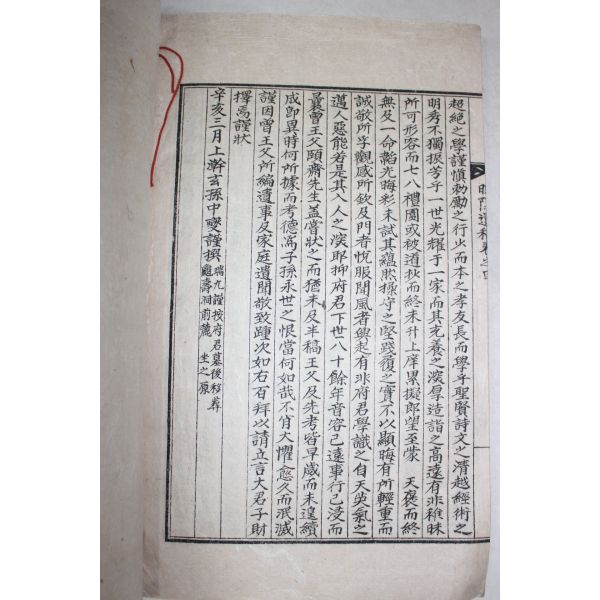 超絶之學謹愼勅勵之行止而本之孝友長而學乎聖賢詩文之淸越經術之
明秀不獨振芳乎一世光耀于一家而其充養之深厚造詣之高遠有非稚昧
所可形容而七八禮圍或被道抄而終未升上庠累擬郎望至蒙 天褒而終
無及一命韜光晦彩未試其蘊然操守之堅踐履之實不以顯晦有所輕重而
誠敬所孚觀感所欽及門者悅服聞風者興起有非府君學識之自天英氣之
邁人惡能若是其入人之深耶抑府君下世八十餘年音容已遠事行已浸而
曩曾王父頤齋先生盖嘗狀之而猶未及半稿王父及先考皆早歲而未遑續
成卽異時何所據而考德潙子孫永世之恨當何如哉不肖大懼愈久而泯滅
謹因曾王父所編遺事及家庭遺聞敬致踵次如右百拜以請立言大君子財
擇焉謹狀
辛亥三月上澣玄孫中燮謹撰
瑞九謹按府君墓後移葬
龜壽洞前麓 坐之原
遺稿卷之四